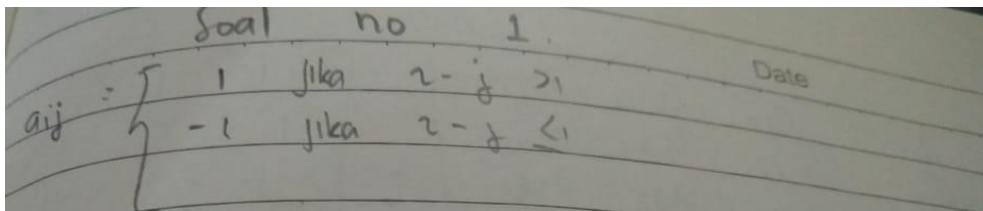 Soal no 1.
Date
aij = { 1 jika i - j > 1
-1 jika i - j ≤ 1